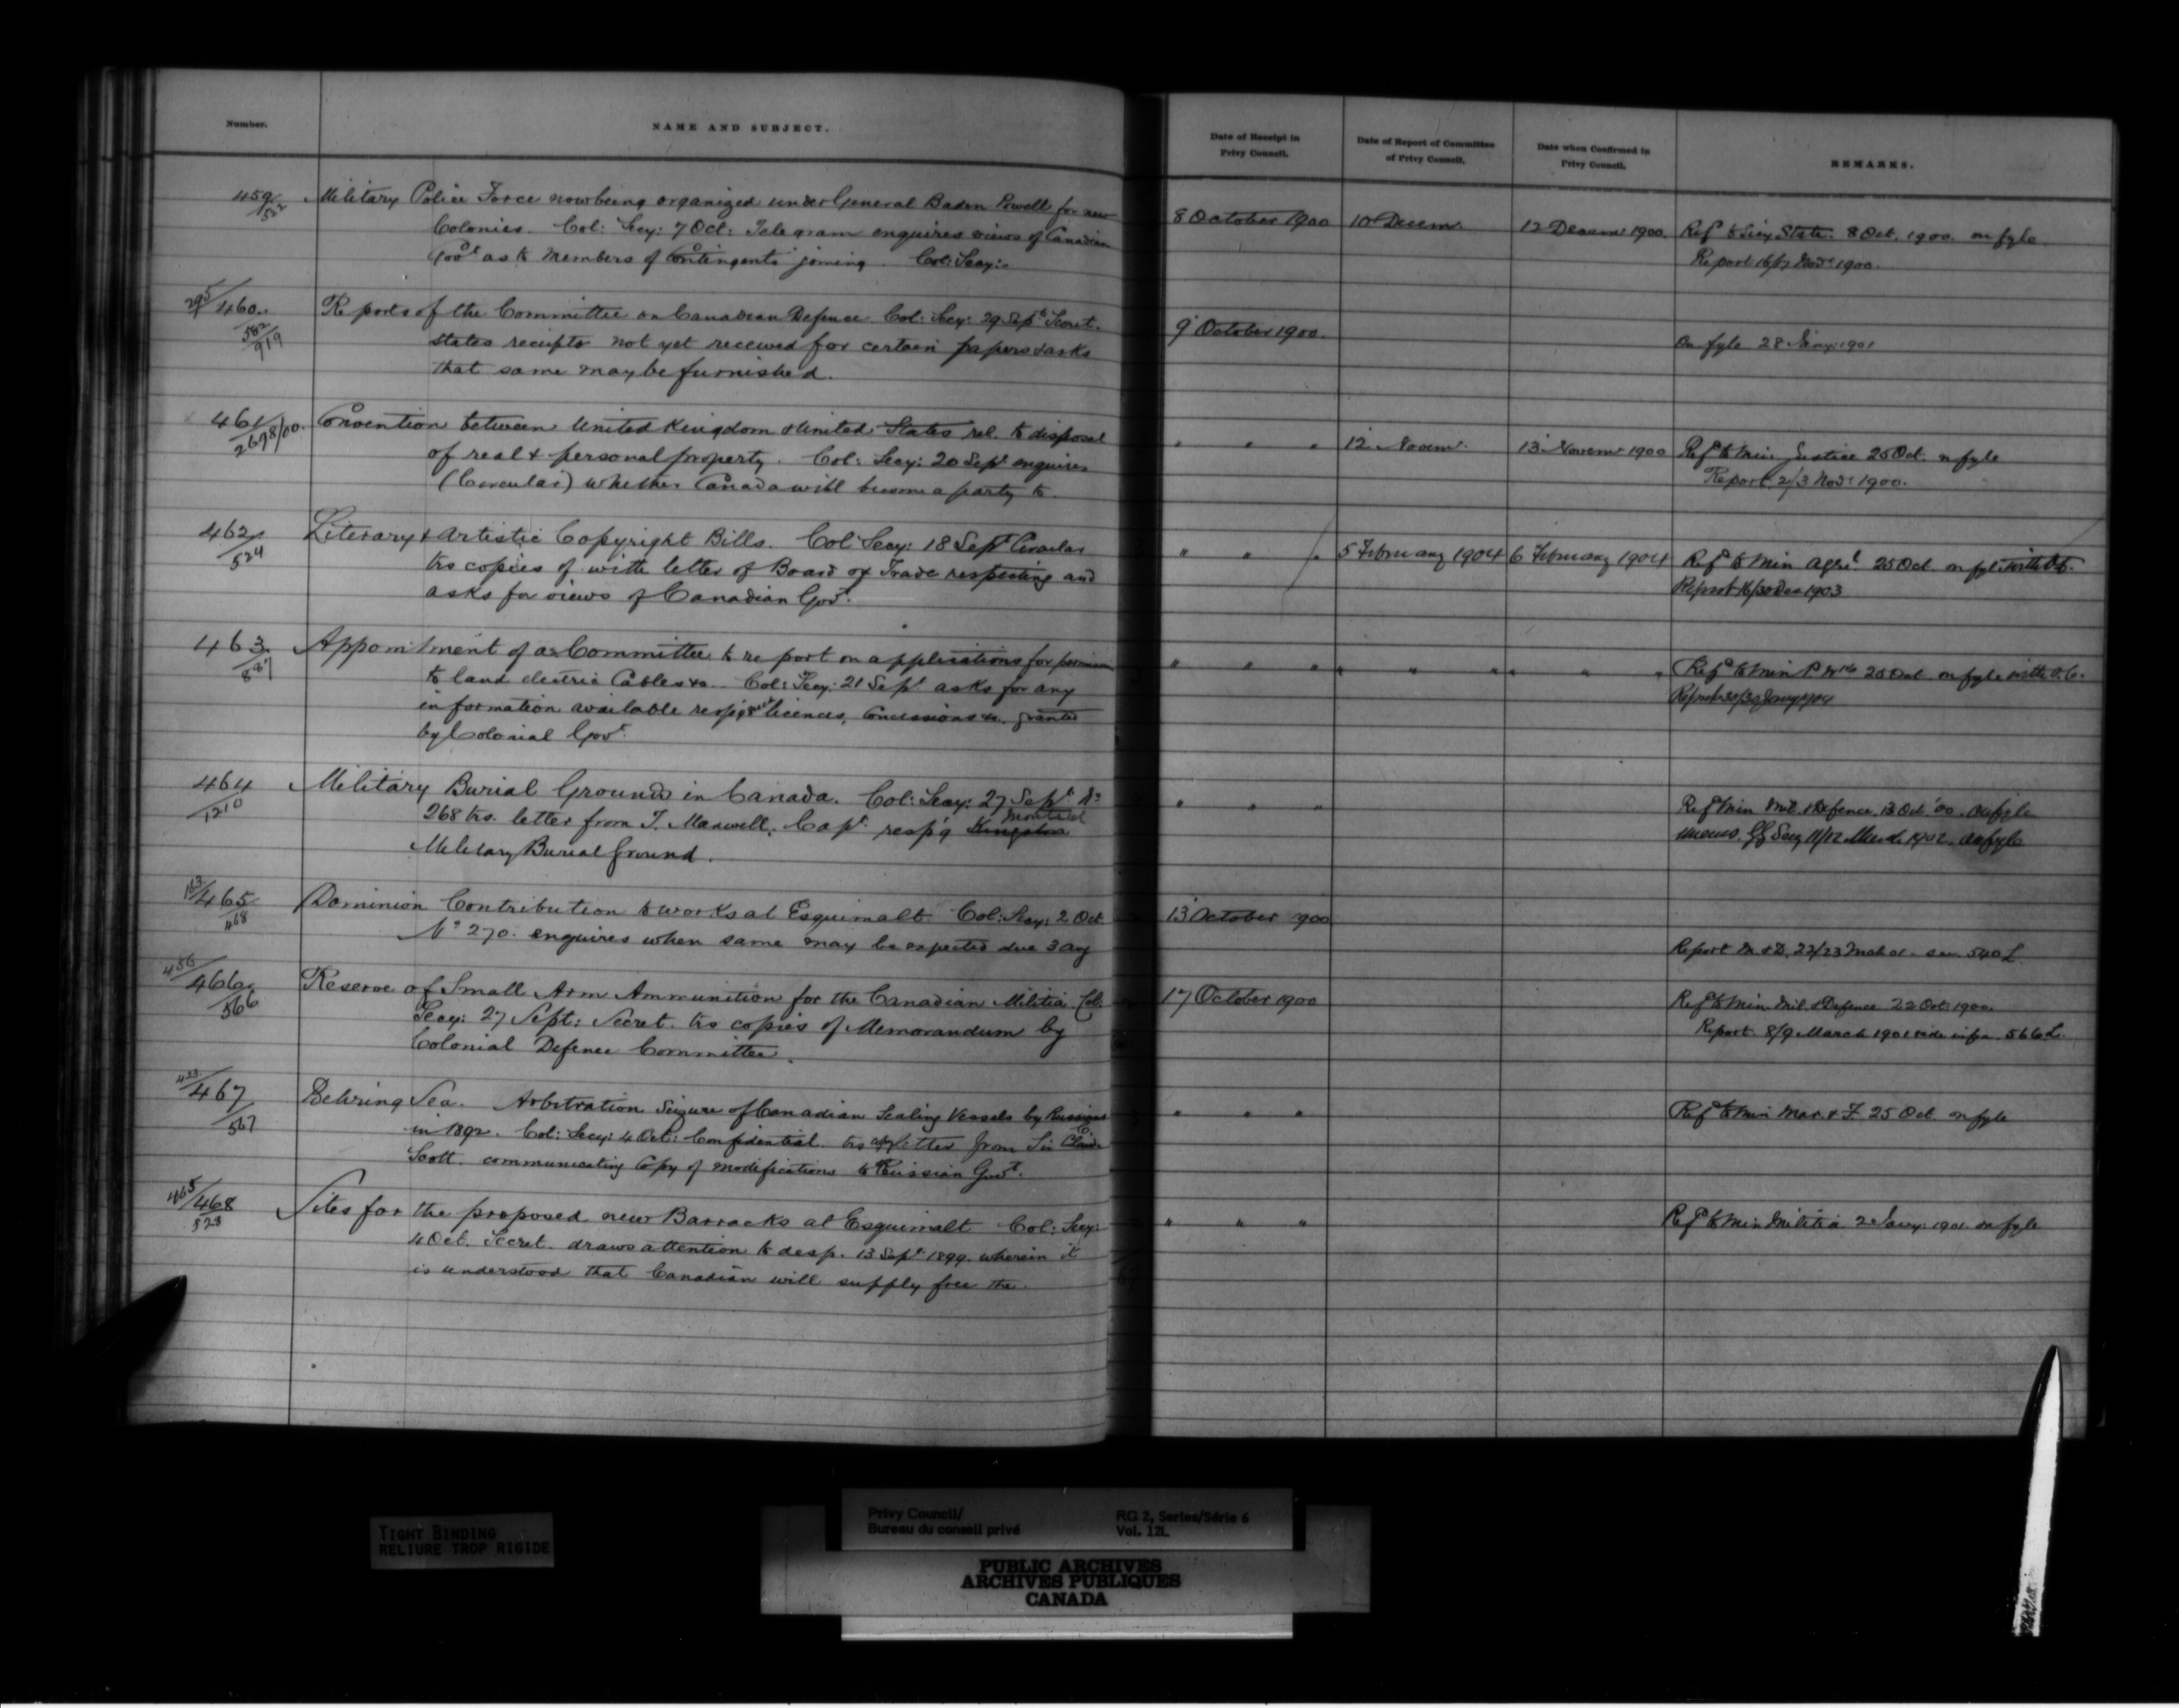 Number.
NAME AND SUBJECT.
Date of Receipt in
Privy Council.
Date of Report of Committee
of Privy Council.
Date when Confirmed in
Privy Council.
REMARKS.
459/532
Military Police Force now being organized under General Baden Powell for new
Colonies. Col: Secy: 7 Oct: Telegram enquires views of Canadian
Govt as to members of Contingents joining. Col: Secy:
8 October 1900
10 Decemr
12 Decemr 1900.
Refd to Secy State. 8 Oct. 1900. on fyle.
Report 16/17 Novr 1900.
295/460.
582/919
Reports of the Committee on Canadian Defence. Col: Secy: 29 Sept Secret.
states receipts not yet received for certain papers & asks
that same may be furnished.
9 October 1900.
On fyle 28 Jany: 1901
461/2678/00.
Convention between United Kingdom & United States rel. to disposal
of real & personal property. Col: Secy: 20 Sept enquires
(Circular) whether Canada will become a party to.
" " "
12 Novemr.
13 Novemr 1900
Refd to Min Justice 25 Oct. on fyle
Report 2/3 Novr 1900.
462/524
Literary & Artistic Copyright Bills. Col Secy: 18 Sept Circular
trs copies of with letter of Board of Trade respecting and
asks for views of Canadian Govt.
" " "
5 February 1904
6 February 1904
Refd to Min Agrl. 25 Oct. on fyle with O.C.
Report 16/30 Dec 1903
463/887
Appointment of a Committee to report on applications for permission
to land electric Cables &c. Col: Secy: 21 Sept asks for any
information available resp'g such licences, Concessions &c. granted
by Colonial Govt.
" " "
" " "
" " "
Refd to Min P Wks 25 Oct on fyle with O.C.
464/1210
Military Burial Grounds in Canada. Col: Secy: 27 Sept No
268 trs. letter from T. Maxwell, Capt. resp'g Kingston Montreal
Military Burial Ground.
" " "
Refd Min Mil. & Defence 13 Oct. '00. on fyle
Secy 11/12 March 1902. on fyle
163/465/468
Dominion Contribution to works at Esquimalt. Col: Secy: 2 Oct
No 270. enquires when same may be expected due 3 Aug
13 October 1900
Report M & D. 22/23 540 L.
456/466/566
Reserve of Small Arm Ammunition for the Canadian Militia Col:
Secy: 27 Sept: Secret. trs copies of Memorandum by
Colonial Defence Committee.
17 October 1900
Refd to Min Mil. & Defence 22 Oct 1900.
Report 8/9 March 1901 vide infra. 566 L.
433/467/567
Behring Sea. Arbitration Seizure of Canadian Sealing Vessels by Russians
in 1892. Col: Secy: 4 Oct: Confidential. trs copy letter from Sir C.
Scott. communicating Copy of modifications to Russian Govt.
" " "
Refd to Min Mar. & F. 25 Oct. on fyle
465/468/523
Sites for the proposed new Barracks at Esquimalt Col: Secy:
4 Oct. Secret. draws attention to desp. 13 Sept 1899. wherein it
is understood that Canadian will supply free the.
" " "
Refd to Min Militia 2 Jany: 1901. on fyle
TIGHT BINDING
RELIURE TROP RIGIDE
Privy Council/
Bureau du conseil privé
RG 2, Series/Série 6
Vol. 12L
PUBLIC ARCHIVES
ARCHIVES PUBLIQUES
CANADA